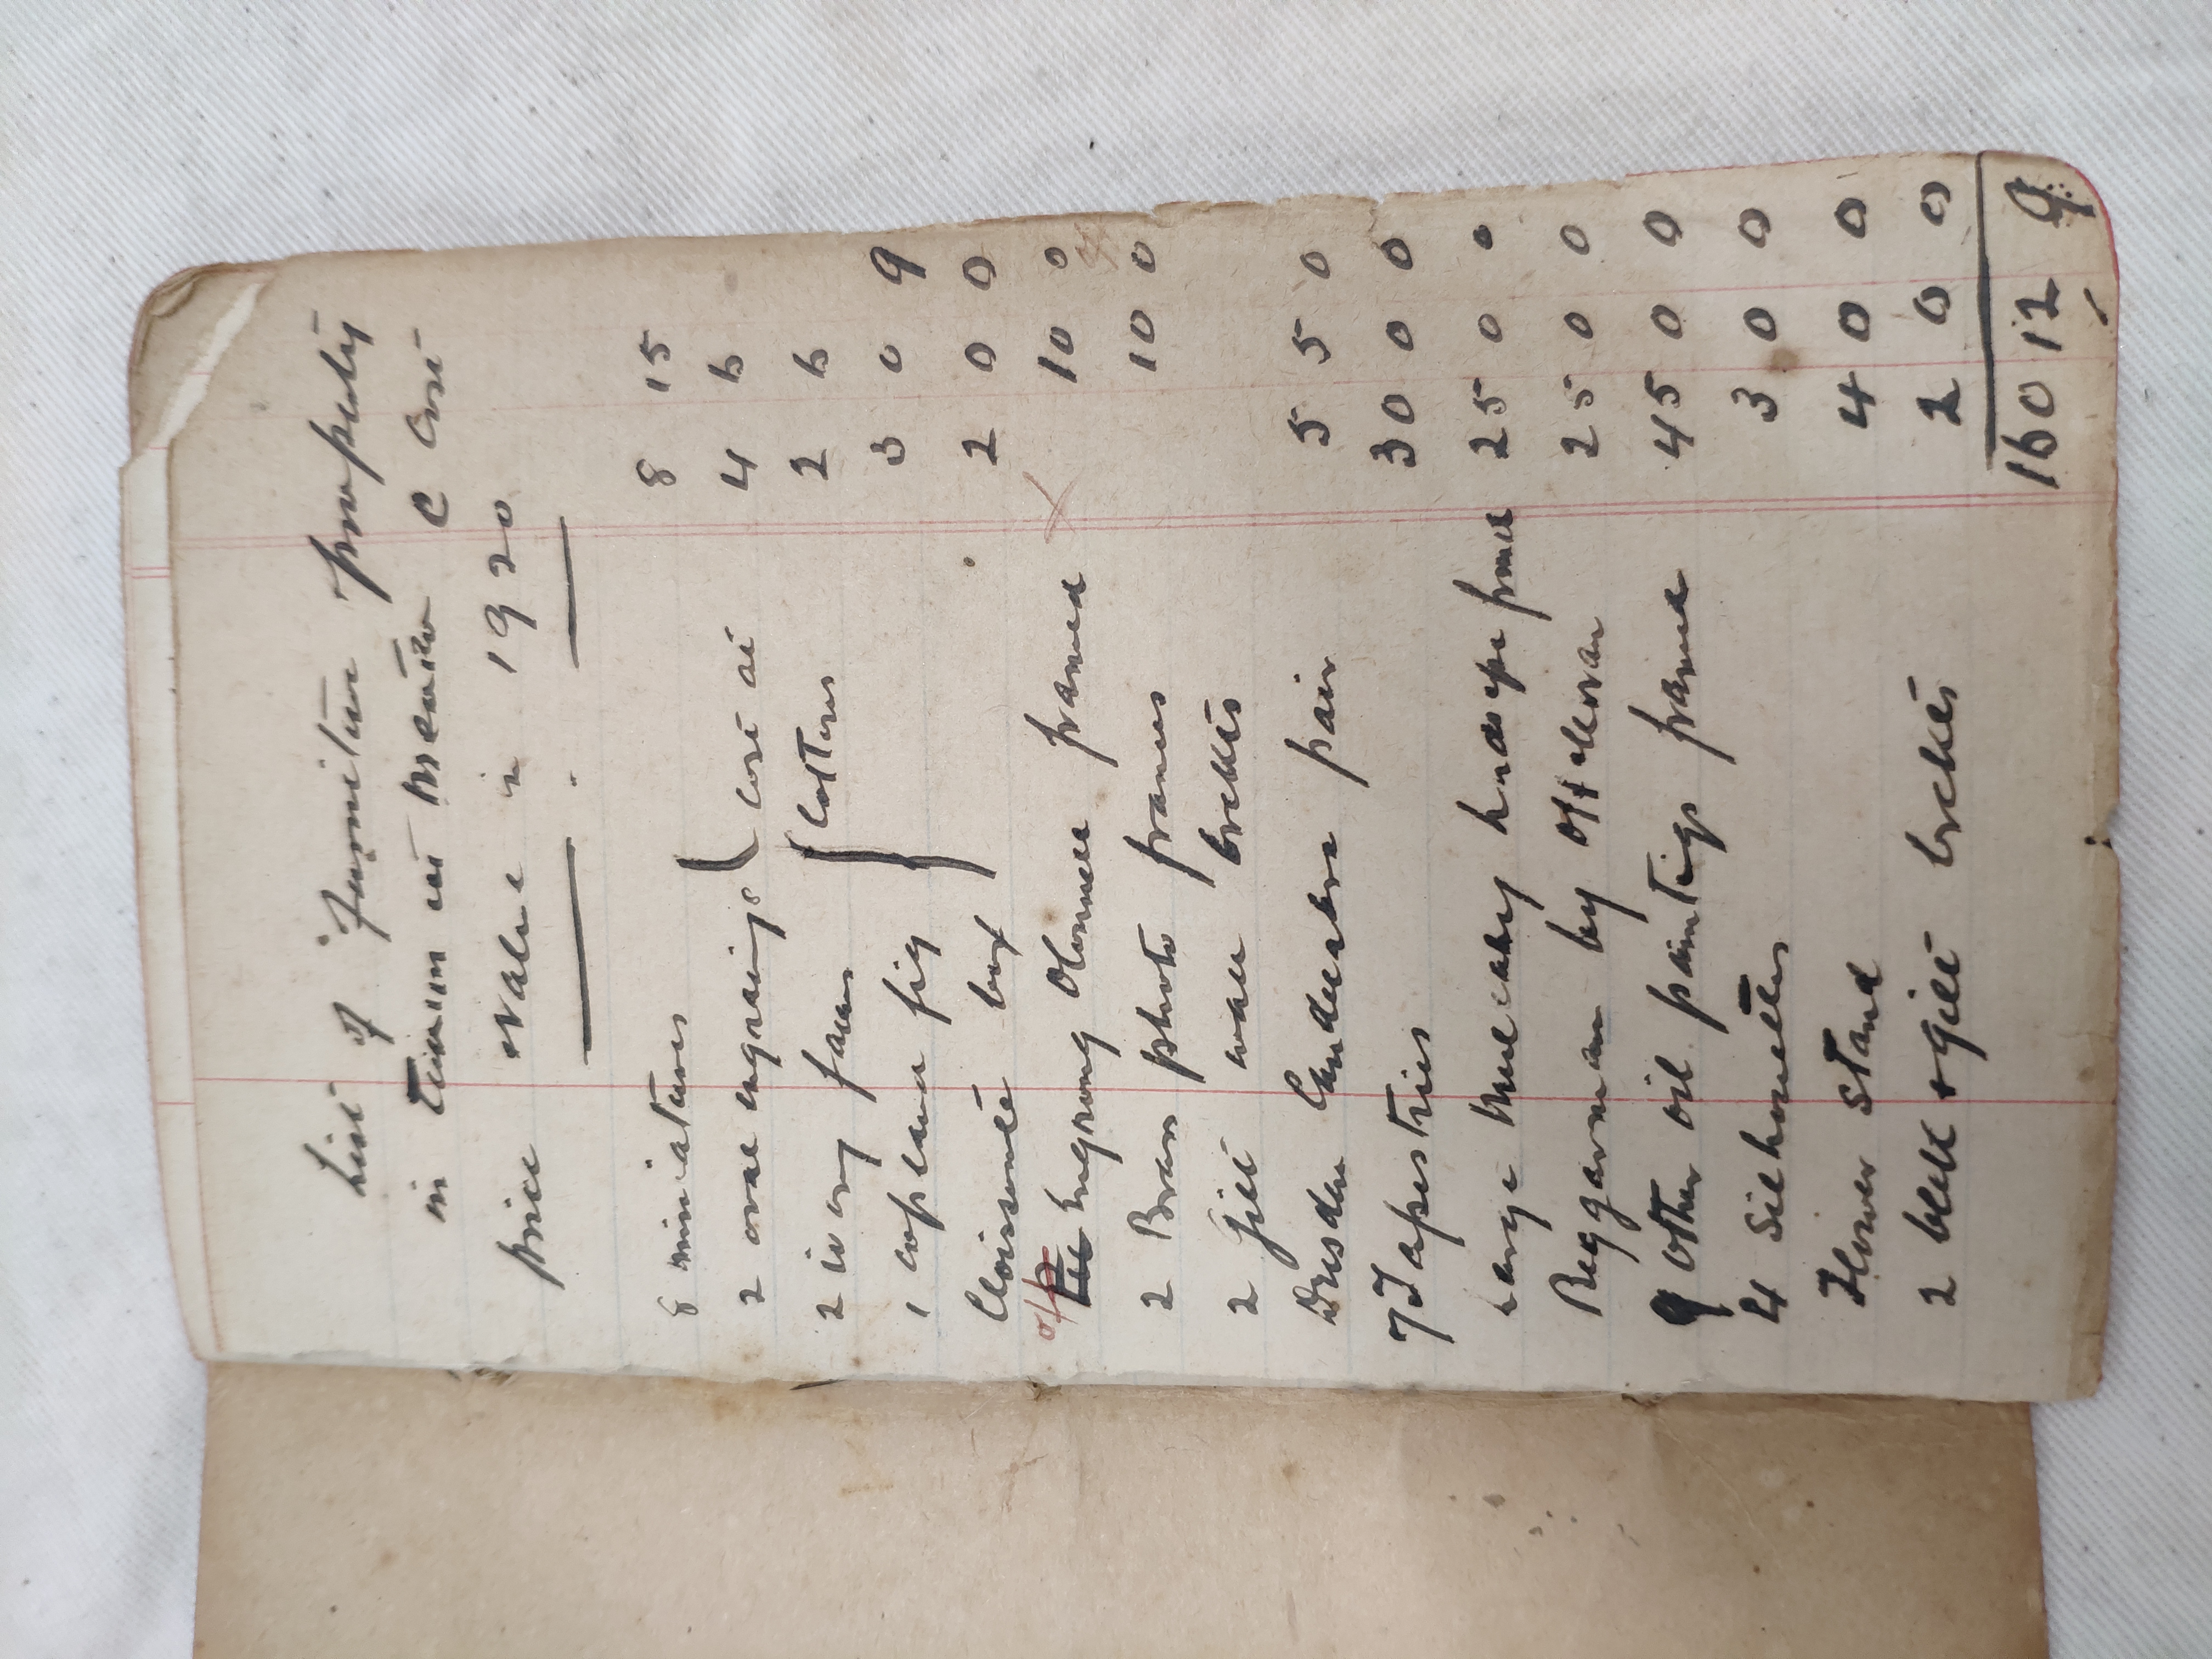 List of furniture property
in Team at Meath @ Cost
price value in 1920
8 miniatures 8 15
2 oval engravings cost at 4 6
2 ivory fans Cotters 2 6
1 fig 3 0 9
Cloisonné box 2 0 0
o/p Engraving O'Connell framed 10 0
2 Brass photo frames 10 0
2 Gilt wall brckets
Dresden Candelabra pair 5 5 0
7 Tapestries 30 0 0
Large Mulcahy landscape framed 25 0 0
Beggarman by 25 0 0
9 other oil paintings framed 45 0 0
4 Silhouettes 3 0 0
Flower stand 4 0 0
2 blk + gilt brckets 2 0 0
160 12 9